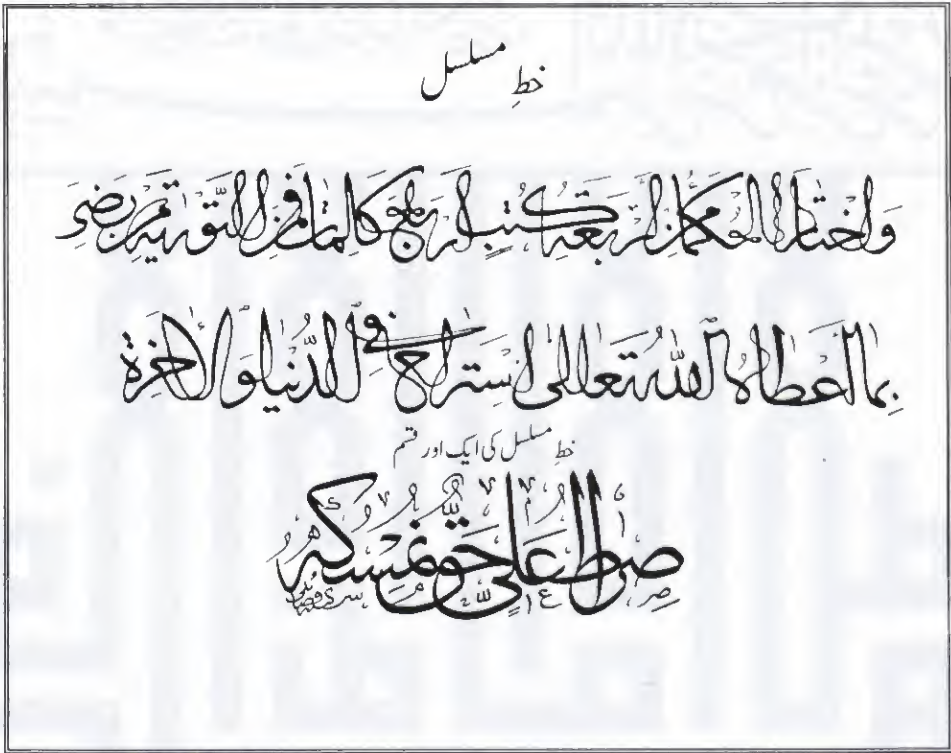 خطِ مسلسل
واختار الحكماء من اربعة كتب اربع كلمات من التورية من رضي
بما اعطاه الله تعالى استراح في الدنيا والاخرة
خطِ مسلسل کی ایک اور قسم
صراط علی حق نمسكه